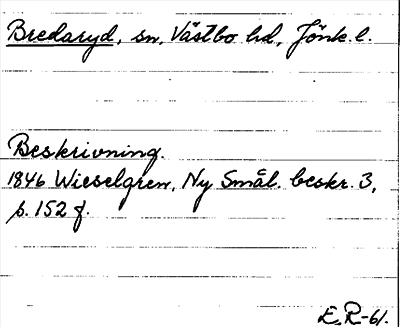 Bredaryd, sn, Västbo hd, Jönk. l.
Beskrivning.
1846 Wieselgren, Ny Smål. beskr. 3,
s. 152 f.
E.R-61.